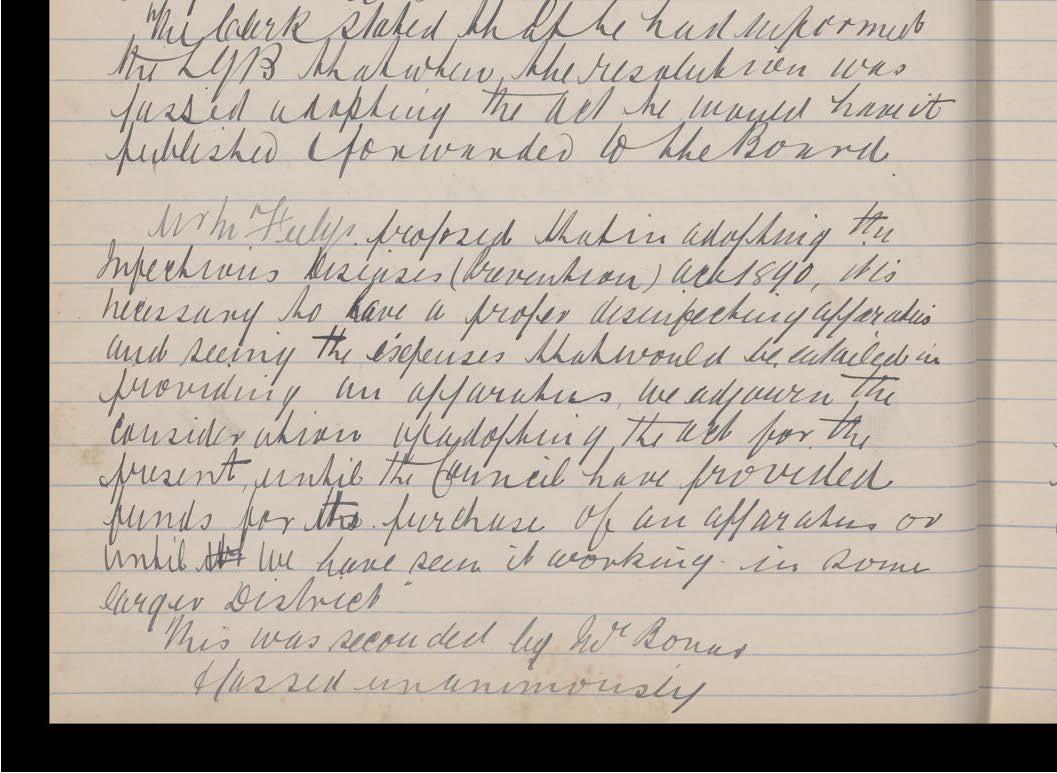 The Clerk stated that he had informed
the LGB that when the resolution was
passed adopting the act he would have it
published & forwarded to the Board.
Mr McFeely proposed that in adopting the
Infectious Diseases (Prevention) Act 1890, it is
necessary to have a proper disinfecting apparatus
and seeing the expenses that would be entailed in
providing an apparatus, we adjourn the
consideration of adopting the act for the
present, until the Council have provided
funds for the purchase of an apparatus or
until we have seen it working in some
larger District
This was seconded by Mr Bonar
& passed unanimously